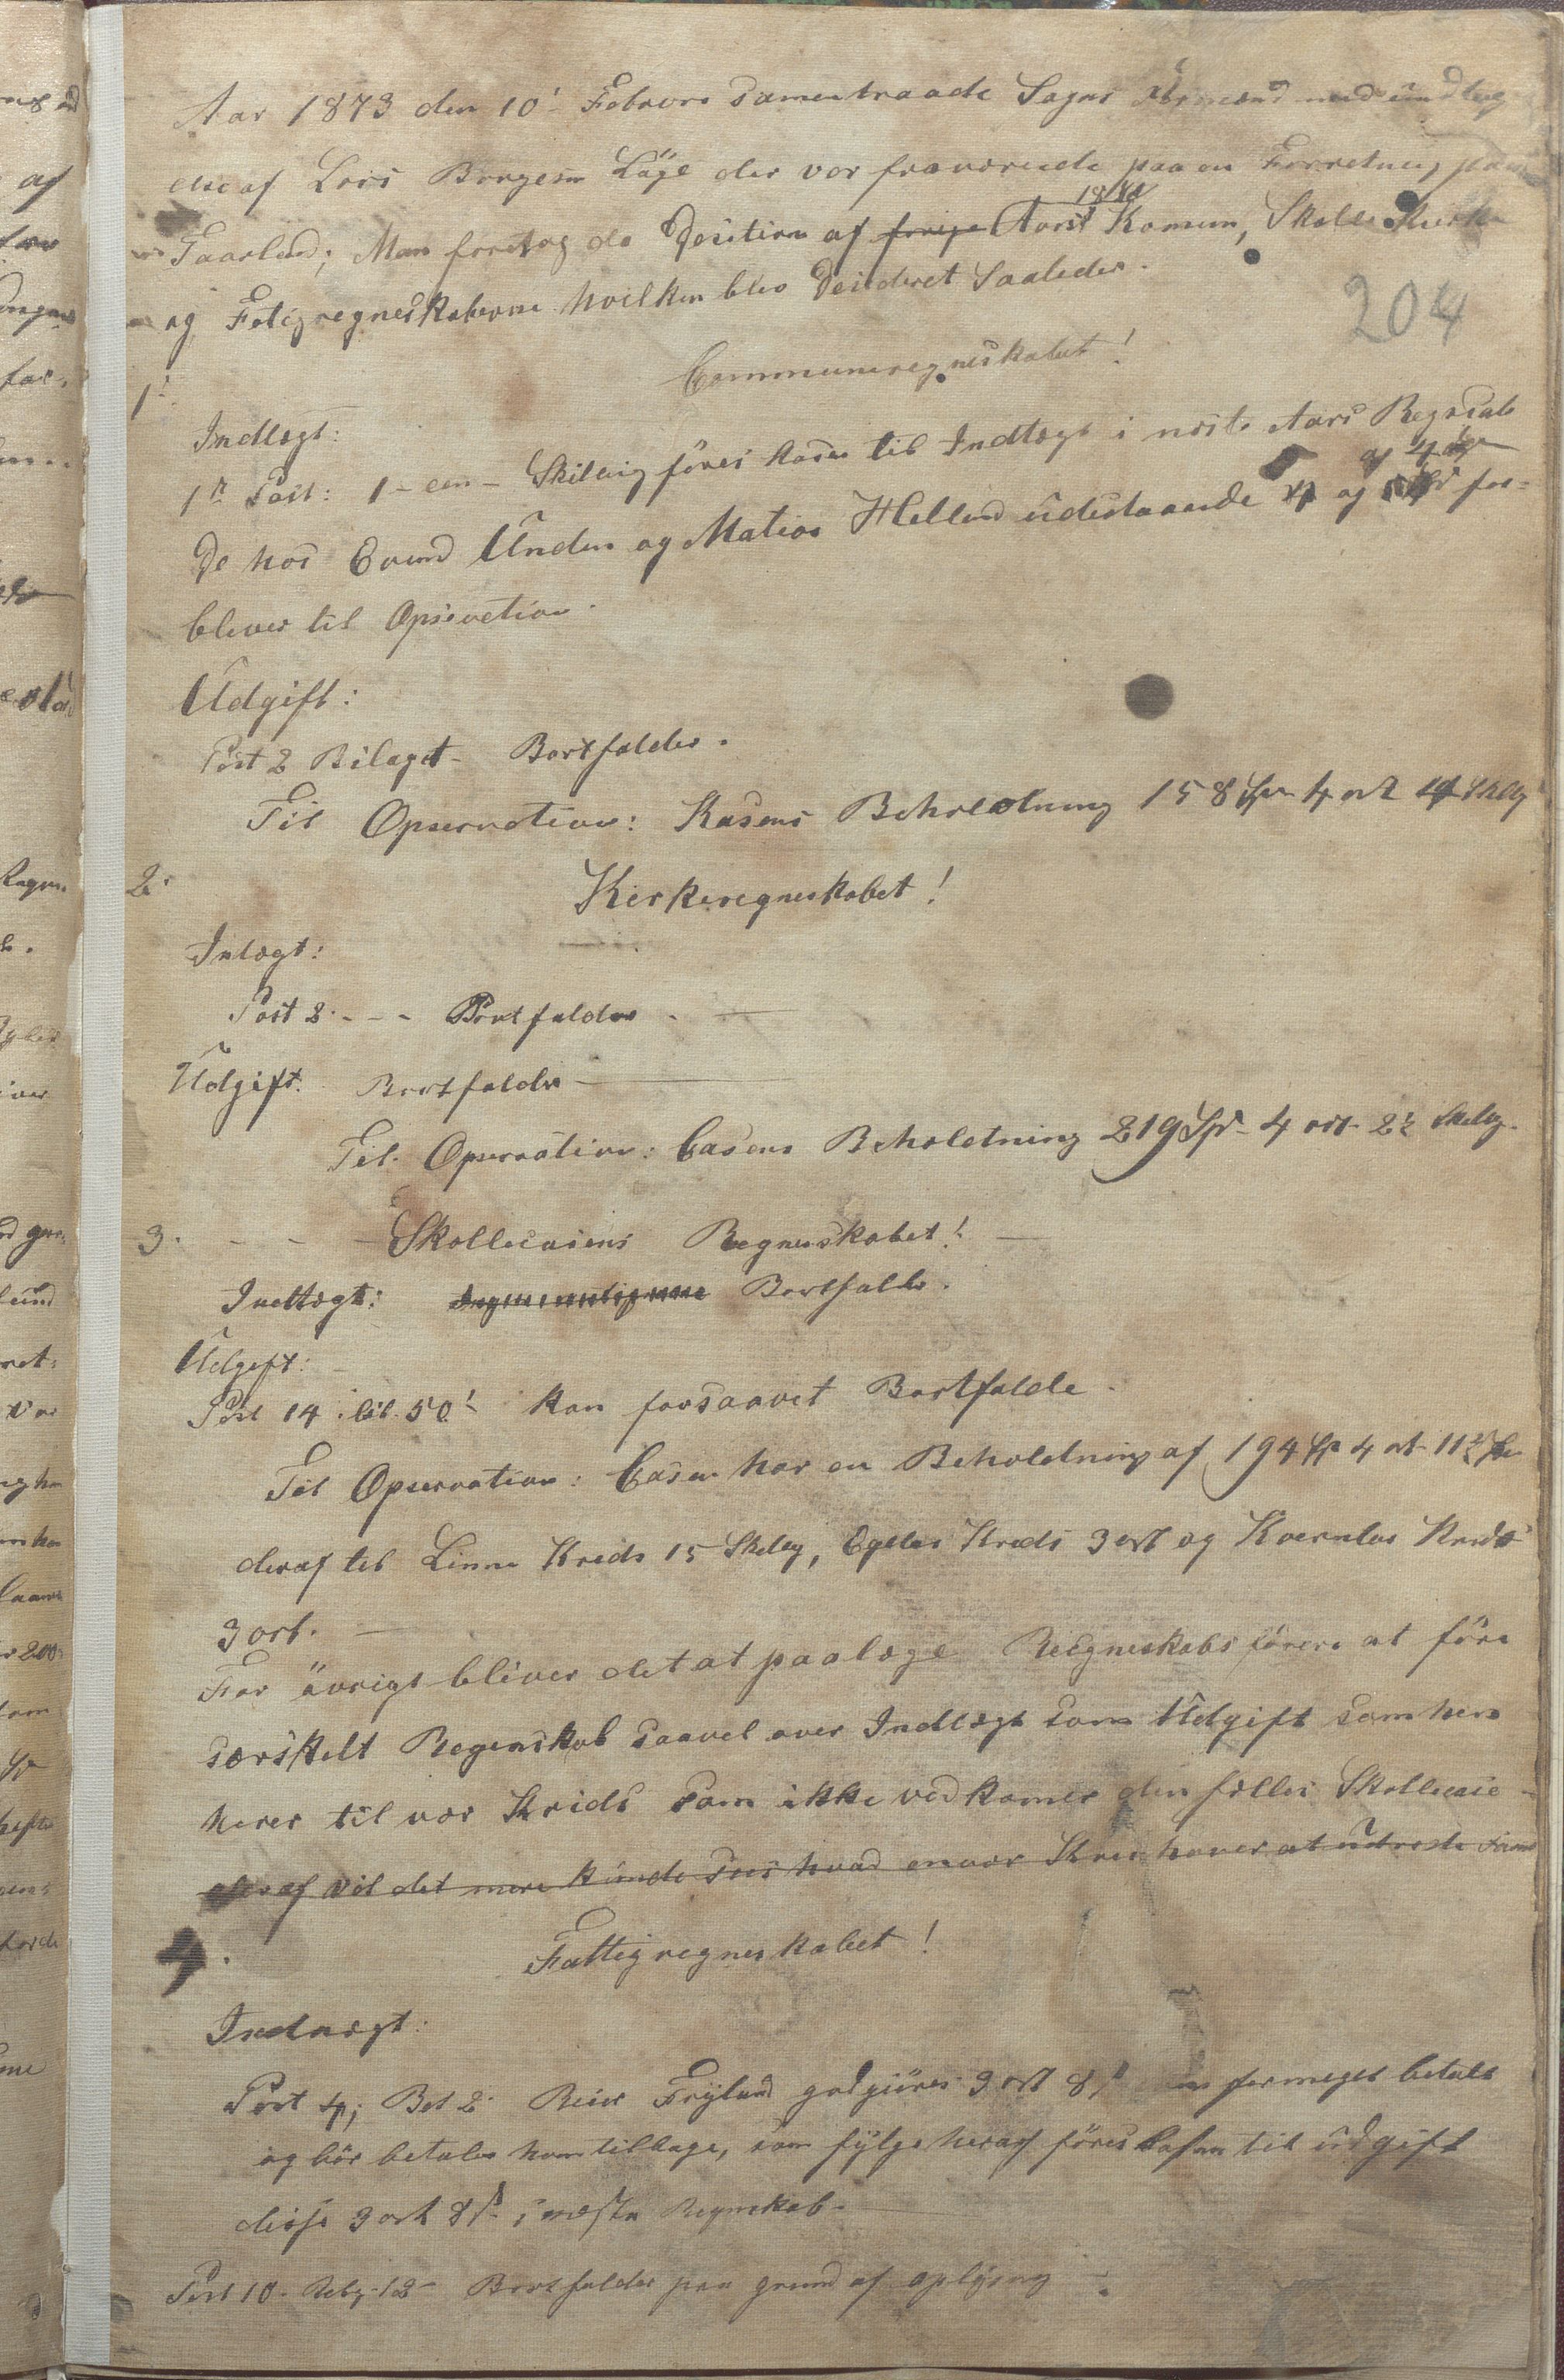 Aar 1873 den 10' Februar samentraade Sogns Formænd med undtag
else af Lars Borgesen Läge der var fraværende paa en Forretning paa
Faarland; Man foretog da Desition af forrige Aars 1872 Komun, Skolle Kirke
og Fatigregneskaberne hvilken blev Desideret Saaledes.
204
1' Communeregneskabet!
Indtægt:
1ste Post: 1 - een - Skilling föres Kasen til Indtægt i næste Aars Regnskab
De hos Evend Unden og Matias Helland udestaaende 4 og for=
bliver til Opservation.
Udgift:
Post 2 Bilaget - Bortfalder.
Til Opservation: Kasens Beholdning 158 Spd 4 ort 14 Skillg
2. Kirkeregneskabet!
Intægt:
Post 2. - - - Bortfalder.
Udgift. Bortfalder
Til Opservation: Casens Beholdning 219 Spd - 4 ort - 2½ Skillg.
3. - - - Skollecasens Regneskabet!
Indtægt: Bortfalder.
Udgift:
Post 14 bil. 50! kan forsaavet Bortfalde.
Til Opservation: Casen har en Beholdning af 194 Sp 4 ort 11½
deraf til Linne Kreds 15 Skillg, Egelas Kreds 3 ort og Kvernlas Kreds
3 ort.
For övrigt bliver det at paalæge Regneskabsförere at före
særskelt Regenskab saavel over Indtægt som Udgift som hen
hörer til vær Kreds som ikke vedkomer den fælles Skollecase
deraf vil det mere kunde sees hvad envær Kreds haver at udrede
4. Fattigregneskabet!
Indtægt:
Post 4; Bet 2. Reier Fryland godgiöres 3 ort 8 s formeget betalt
og bör betales ham tilbage, som fylge heraf föres Casen til udgift
disse 3 ort 8 s i næste Regnskab.
Post 10. Belg. 12 - Bortfalder paa grund af oplysning